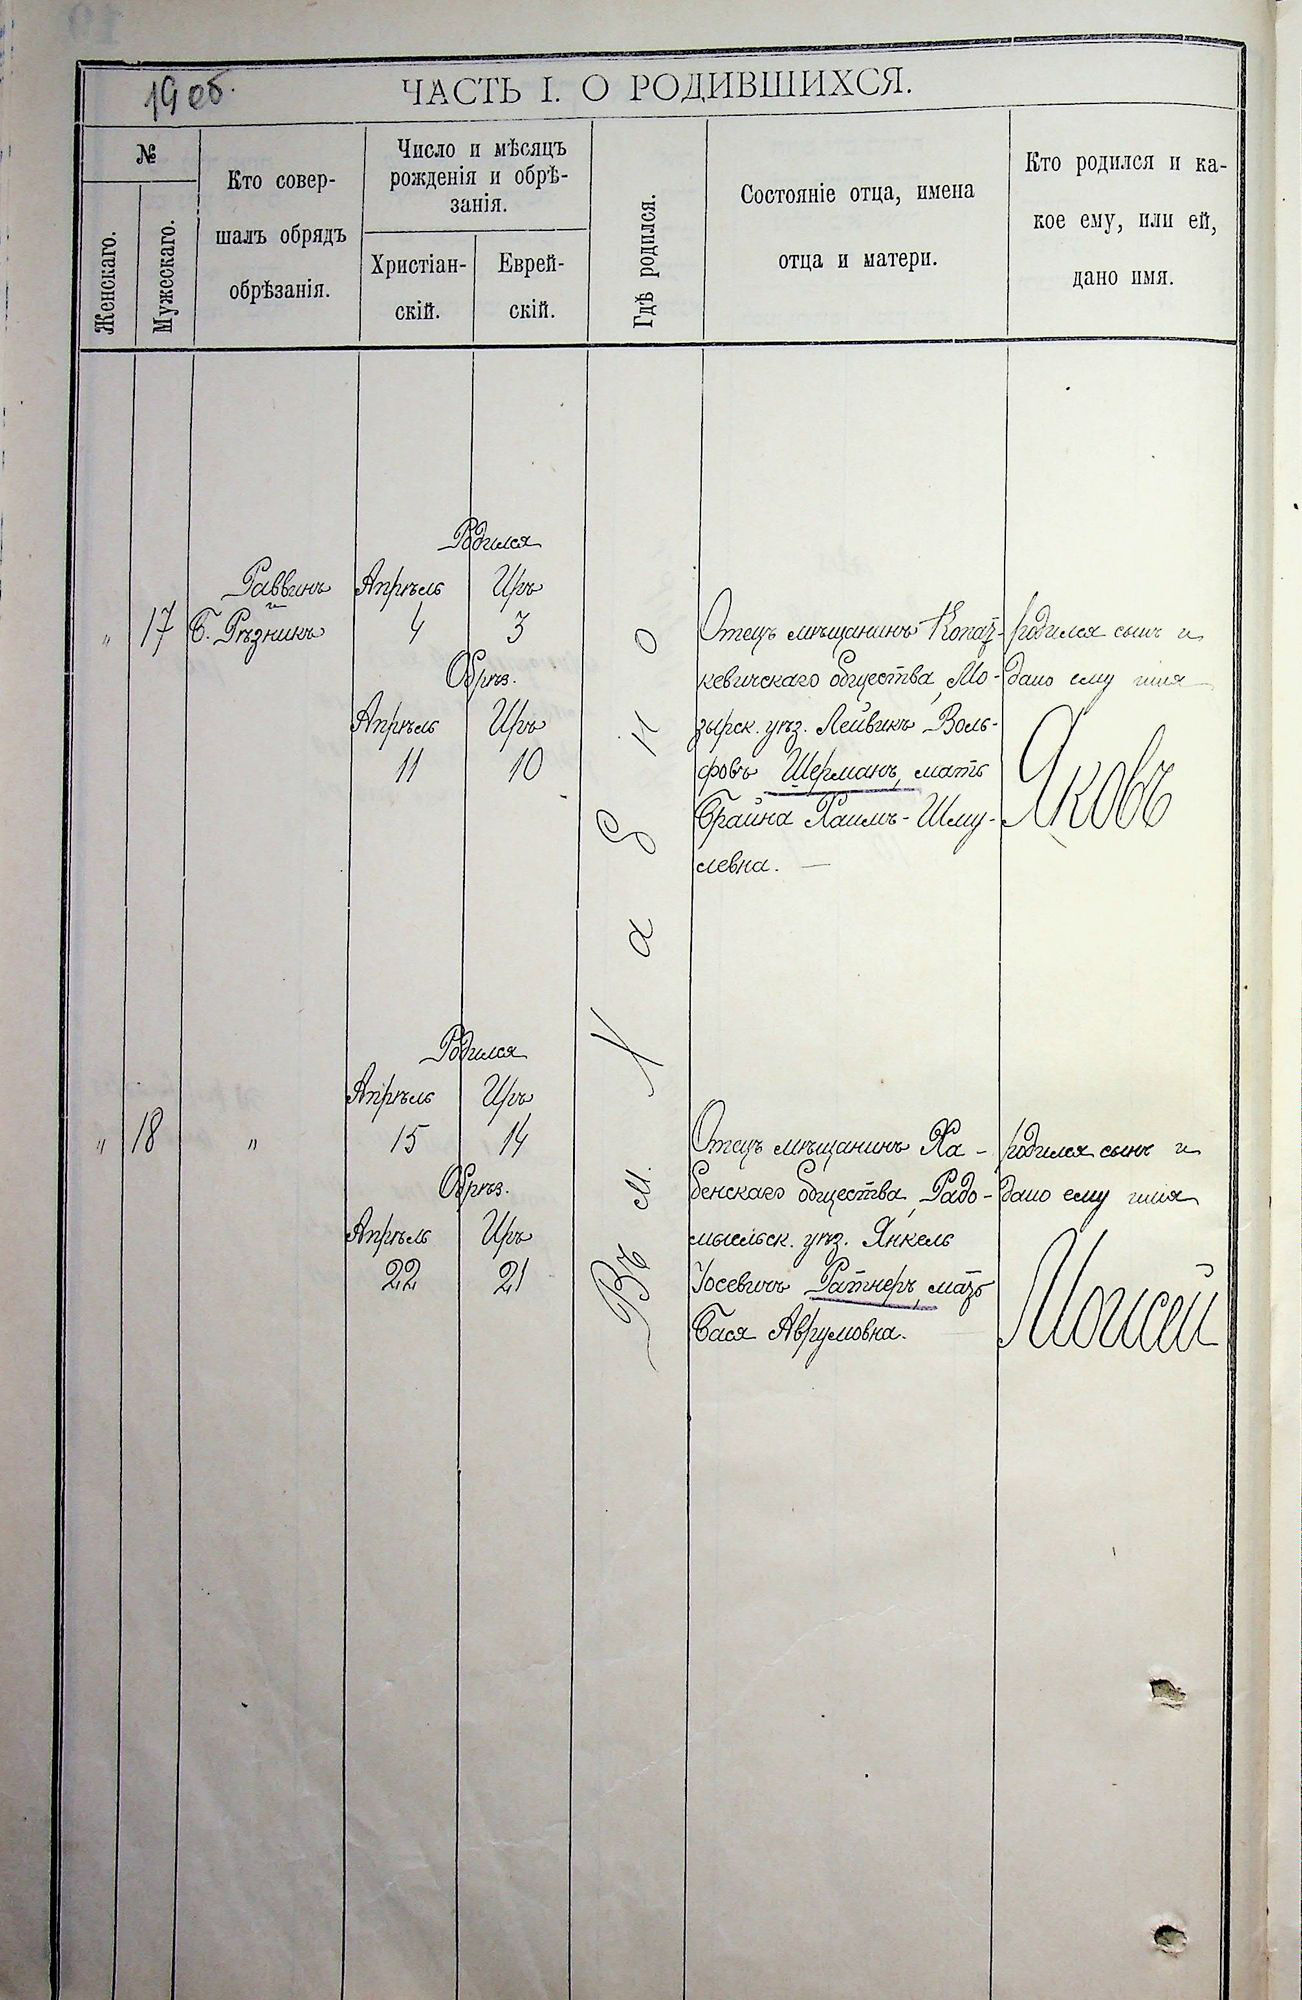 19 об.
ЧАСТЬ I. О РОДИВШИХСЯ.
№
Женскаго.
Мужескаго.
Кто совер-
шалъ обрядъ
обрѣзанія.
Число и мѣсяцъ
рожденія и обрѣ-
занія.
Христіан-
скій.
Еврей-
скій.
Гдѣ родился.
Состояніе отца, имена
отца и матери.
Кто родился и ка-
кое ему, или ей,
дано имя.
"
17
Раввинъ
и
Б. Рѣзникъ
Родился
Апрѣль Иръ
4 3
Обрѣз.
Апрѣль Иръ
11 10
Въ м. Хабно
Отецъ мѣщанинъ Копат-
кевичскаго общества, Мо-
зырск. уѣз. Лейвикъ Воль-
фовъ Шерманъ, мать
Брайна Хаимъ-Шму-
левна. —
родился сынъ и
дано ему имя
Яковъ
"
18
"
Родился
Апрѣль Иръ
15 14
Обрѣз.
Апрѣль Иръ
22 21
Отецъ мѣщанинъ Ха-
бенскаго общества, Радо-
мысльск. уѣз. Янкель
Іосевичъ Ратнеръ, мать
Бася Аврумовна.
родился сынъ и
дано ему имя
Моисей